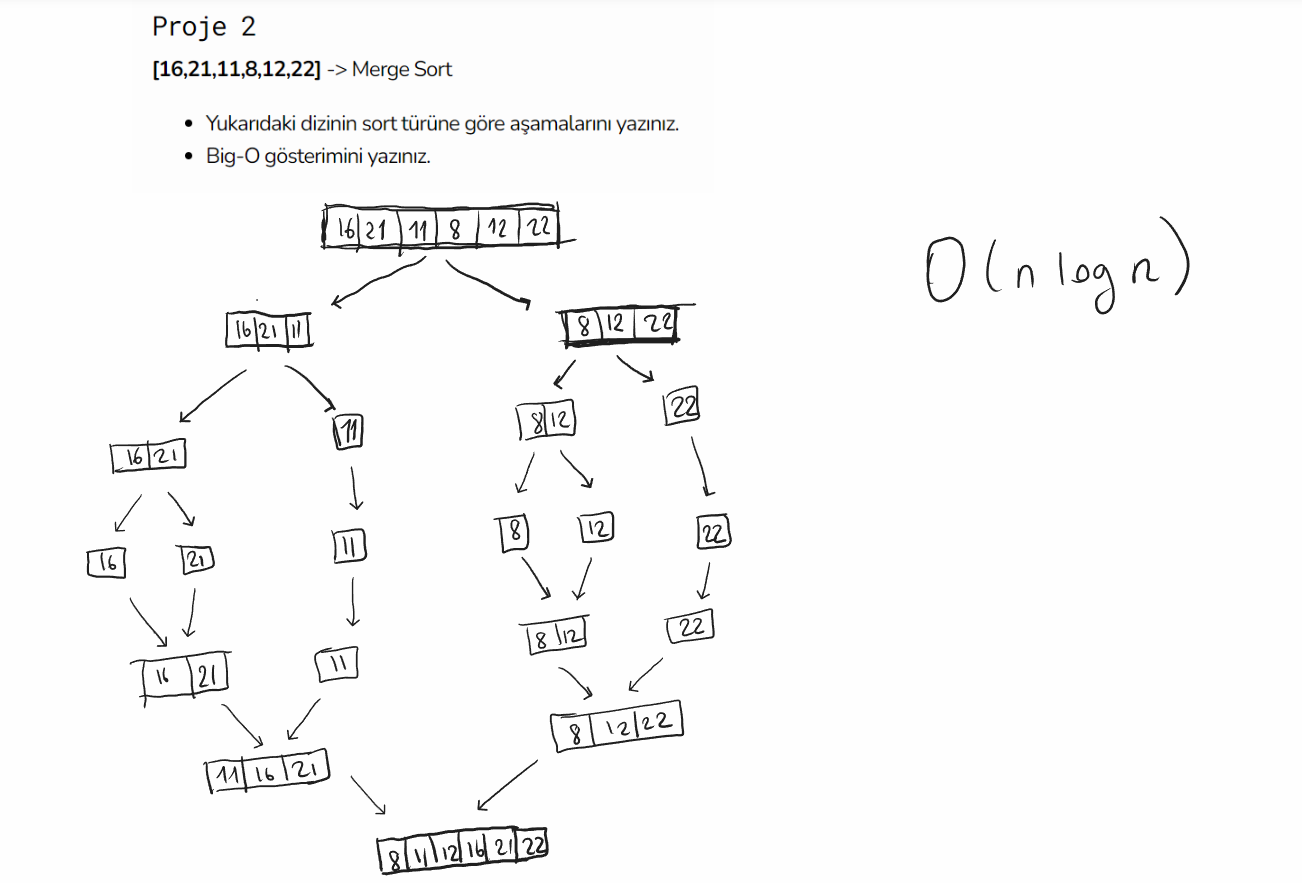 Proje 2
[16,21,11,8,12,22] -> Merge Sort
• Yukarıdaki dizinin sort türüne göre aşamalarını yazınız.
• Big-O gösterimini yazınız.
16 21 11 8 12 22
O(n log n)
16 21 11
8 12 22
16 21
11
8 12
22
16
21
11
8
12
22
16 21
11
8 12
22
11 16 21
8 12 22
8 11 12 16 21 22